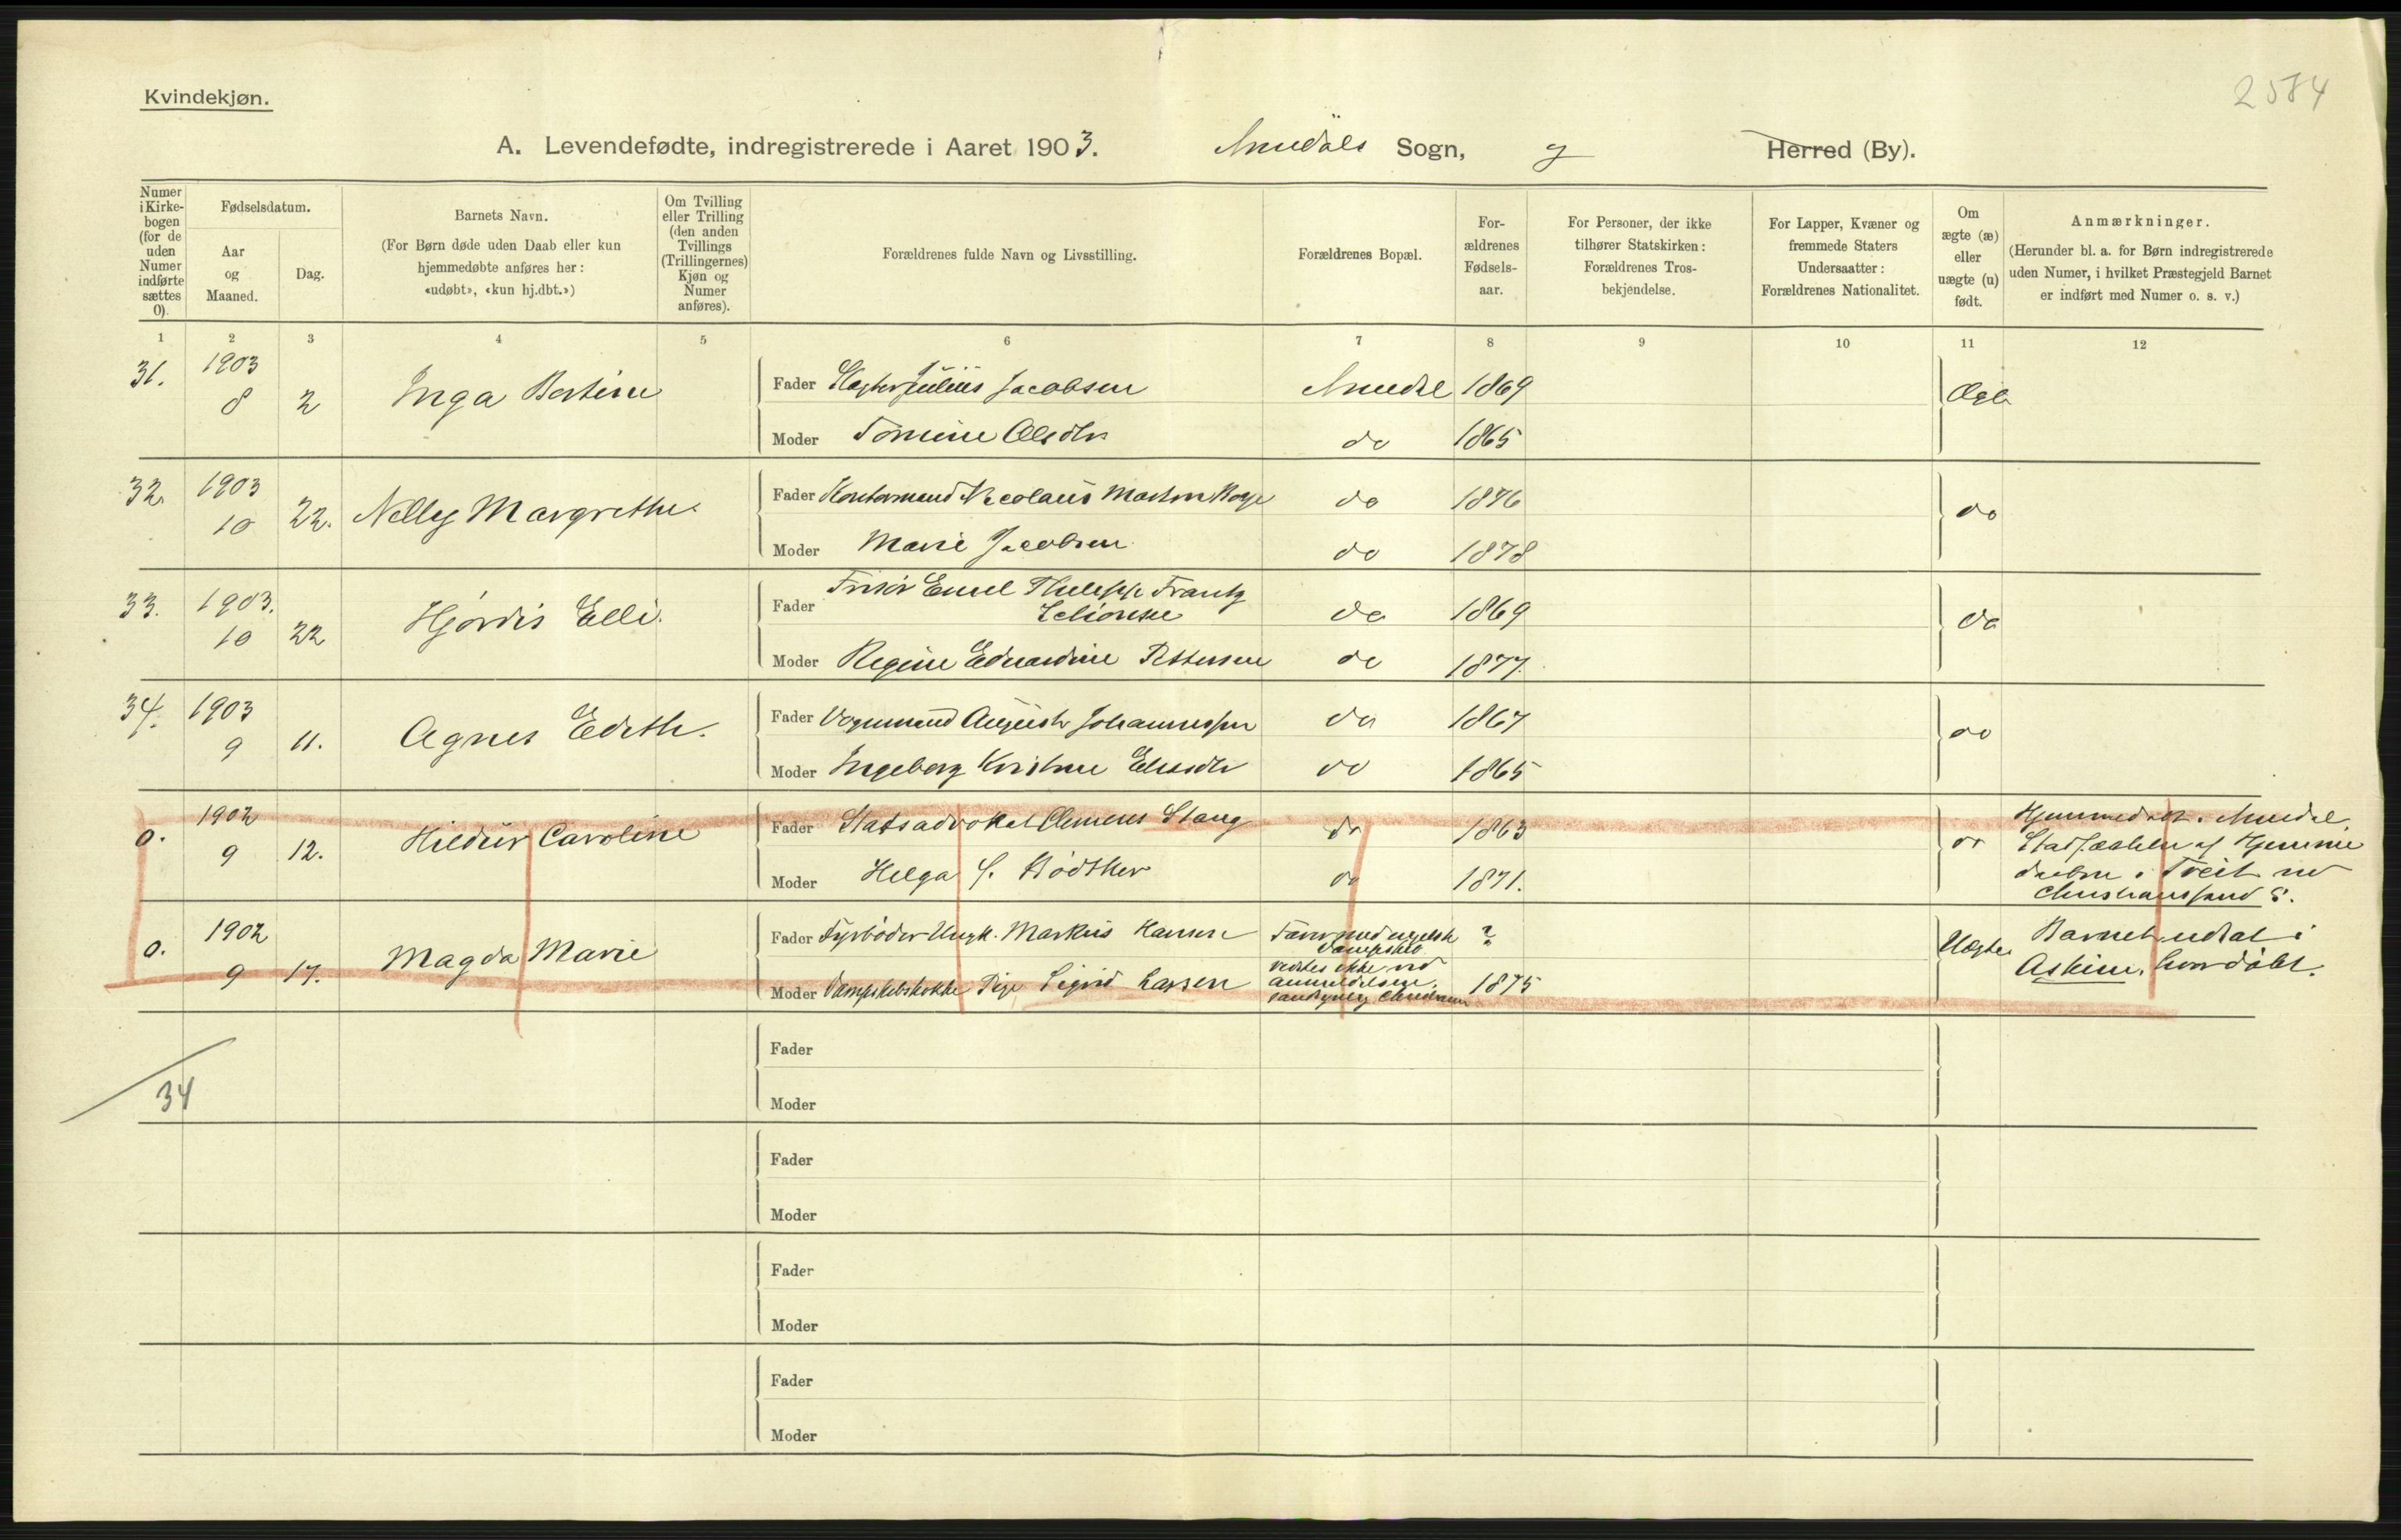 Kvindekjøn.
2584
A. Levendefødte, indregistrerede i Aaret 1903. Arendals Sogn, og Herred (By).
Numer i Kirke-bogen (for de uden Numer indførte sættes 0).
Fødselsdatum.
Aar og Maaned.
Dag.
Barnets Navn.
(For Børn døde uden Daab eller kun hjemmedøbte anføres her: «udøbt», «kun hj.dbt.»)
Om Tvilling eller Trilling (den anden Tvillings (Trillingernes) Kjøn og Numer anføres).
Forældrenes fulde Navn og Livsstilling.
Forældrenes Bopæl.
For-ældrenes Fødsels-aar.
For Personer, der ikke tilhører Statskirken: Forældrenes Tros-bekjendelse.
For Lapper, Kvæner og fremmede Staters Undersaatter: Forældrenes Nationalitet.
Om ægte (æ) eller uægte (u) født.
Anmærkninger.
(Herunder bl. a. for Børn indregistrerede uden Numer, i hvilket Præstegjeld Barnet er indført med Numer o. s. v.)
1 2 3 4 5 6 7 8 9 10 11 12
31. 1903 8 2 Inga Bertine
Fader Slagter Julius Jacobsen Arendal 1869 Ægte
Moder Tomine Olsdtr do 1865
32. 1903 10 22. Nelly Margrethe
Fader Nicolaus do 1876 do
Moder Marie Jacobsen do 1878
33. 1903. 10 22 Hjørdis Elli.
Fader Frisør Emil Frantz
do 1869 do
Moder Regine Eduardine Pettersen do 1877.
34. 1903 9 11. Agnes Edith.
Fader Vognmand August Johannessen do 1867 do
Moder Ingeborg Kristine do 1865
0. 1902 9 12. Hildur Caroline
Fader Statsadvokat Clemens Stang do 1863 do
Moder Helga S. Bödtker do 1871.
Hjemmedøbt i Arendal.
Stadfæstelse af Hjemme
daaben i Tveit ved
Christianssand S.
0. 1902 9 17. Magda Marie
Fader Fyrbøder Ungk. Markus Hansen Farer med engelsk ? Uægte
Dampskib
Moder Dampskibskokke Pige Sigrid Larsen 1875
vidstes ikke ved
anmeldelsen.
Barnet udsat i
Askim, hvor døbt.
34
Fader
Moder
Fader
Moder
Fader
Moder
Fader
Moder